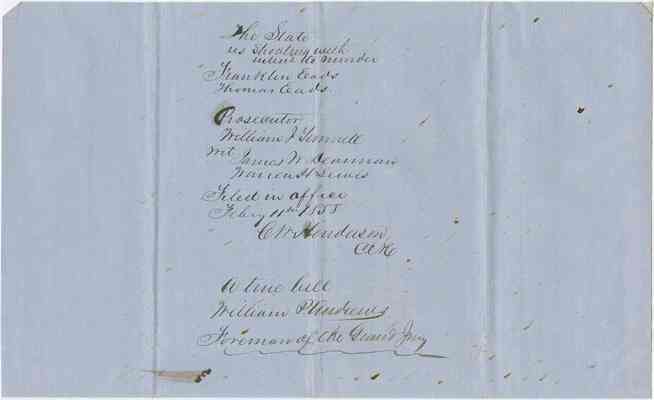 The State
vs Shooting with
intent to murder
Franklin Eads
Thomas Eads.
Prosecutor
William J
Wit James W
Warren H Lewis
Filed in office
Feby 11th 1858
C W Henderson
Clk
A true bill
William P Andrews
Foreman of the Grand Jury